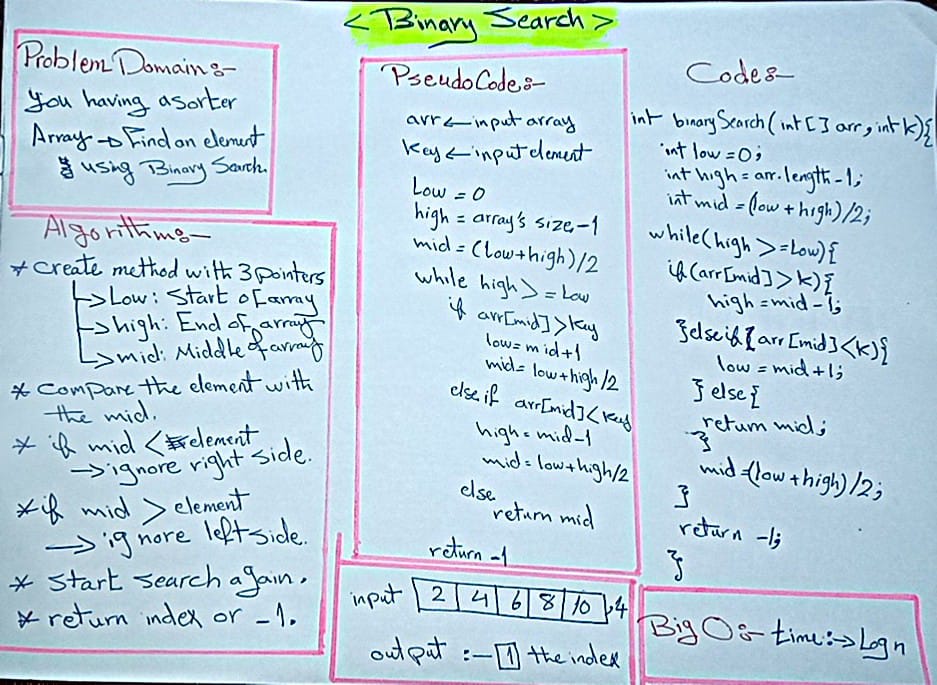 < Binary Search >
Problem Domain:-
You having a sorter
Array → Find an element
using Binary Search.
Algorithm:-
* Create method with 3 pointers
→ Low: Start of array
→ high: End of array
→ mid: Middle of array
* Compare the element with
the mid.
* if mid < element
→ ignore right side.
* if mid > element
→ ignore left side.
* start search again.
* return index or -1.
PseudoCode:-
arr ← input array
Key ← input element
Low = 0
high = array's size-1
mid = (Low+high)/2
while high >= Low
if arr[mid] > Key
low = mid+1
mid = low+high/2
else if arr[mid] < Key
high = mid-1
mid = low+high/2
else
return mid
return -1
input 2 4 6 8 10 , 4
output :- 1 the index
Code:-
int binarySearch(int[] arr, int k){
int low = 0;
int high = arr.length-1;
int mid = (low + high)/2;
while(high >= Low){
if(arr[mid] > k){
high = mid-1;
}else if{arr[mid] < k){
low = mid+1;
} else {
return mid;
}
mid = (low + high)/2;
}
return -1;
}
Big O:- time:→ Log n